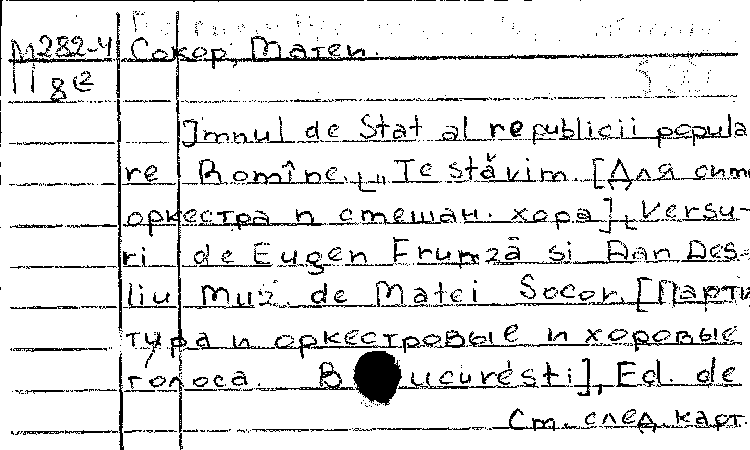 М282-4 Сокор, Матеи.
П 8е
Imnul de Stat al republicii popula
re Romîne. „Te slăvim. [Для сим
оркестра и смешан. хора]. Versu-
ri de Eugen Frunză si Dan Des-
liu Muz. de Matei Socor. [Парти
тура и оркестровые и хоровые
голоса. Bucuresti], Ed. de
См. след. карт.